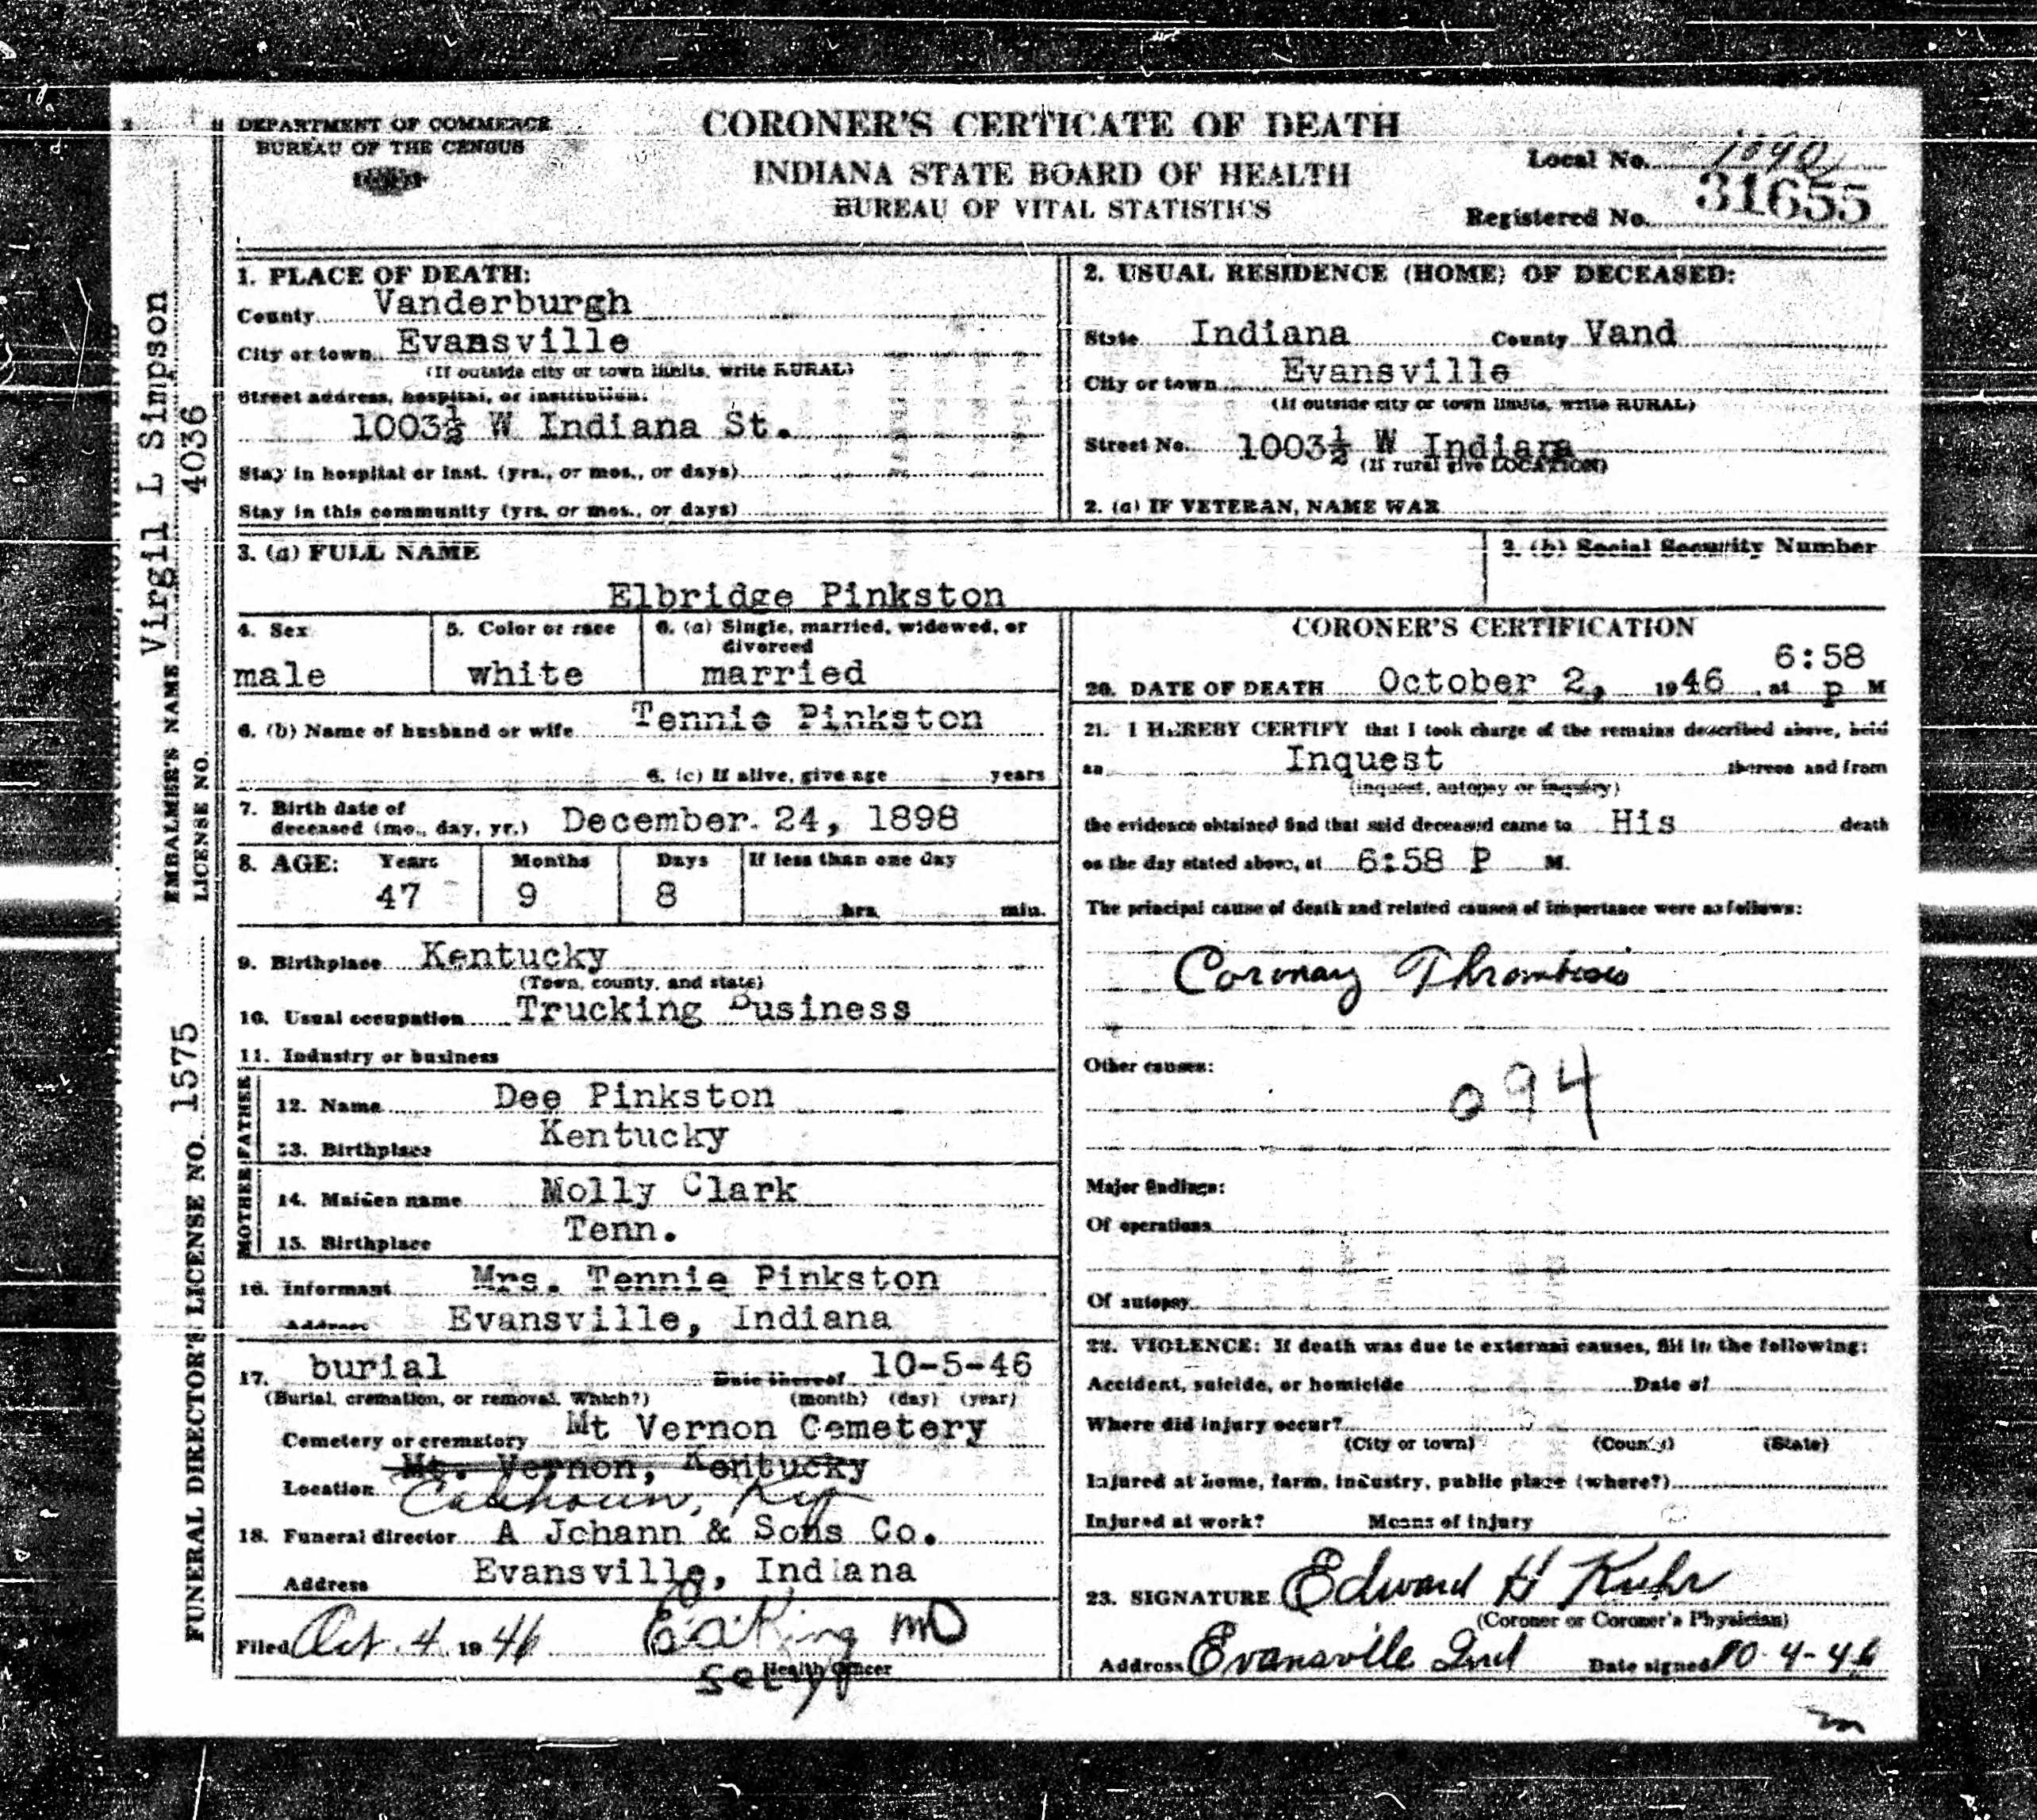 DEPARTMENT OF COMMERCE
BUREAU OF THE CENSUS
CORONER'S CERTICATE OF DEATH
INDIANA STATE BOARD OF HEALTH
BUREAU OF VITAL STATISTICS
Local No.
Registered No. 31655
1. PLACE OF DEATH:
County Vanderburgh
City or town Evansville
(If outside city or town limits, write RURAL)
Street address, hospital, or institution:
1003½ W Indiana St.
Stay in hospital or inst. (yrs., or mos., or days)
Stay in this community (yrs. or mos., or days)
2. USUAL RESIDENCE (HOME) OF DECEASED:
State Indiana County Vand
City or town Evansville
(If outside city or town limits, write RURAL)
Street No. 1003½ W Indiana
(If rural give LOCATION)
2. (a) IF VETERAN, NAME WAR
3. (a) FULL NAME
Elbridge Pinkston
3. (b) Social Security Number
4. Sex
male
5. Color or race
white
6. (a) Single, married, widowed, or divorced
married
6. (b) Name of husband or wife Tennie Pinkston
6. (c) If alive, give age years
7. Birth date of
deceased (mo., day, yr.) December. 24, 1898
8. AGE: Years Months Days If less than one day
47 9 8 hrs. min.
9. Birthplace Kentucky
(Town, county, and state)
10. Usual occupation Trucking Business
11. Industry or business
FATHER
12. Name Dee Pinkston
13. Birthplace Kentucky
MOTHER
14. Maiden name Molly Clark
15. Birthplace Tenn.
16. Informant Mrs. Tennie Pinkston
Address Evansville, Indiana
17. burial Date thereof 10-5-46
(Burial, cremation, or removal. Which?) (month) (day) (year)
Cemetery or crematory Mt Vernon Cemetery
Mt. Vernon, Kentucky
Location Calhoun, Ky
18. Funeral director A Johann & Sons Co.
Address Evansville, Indiana
Filed Oct. 4 1946 King MD
Health Officer
CORONER'S CERTIFICATION
6:58
20. DATE OF DEATH October 2, 1946, at p M
21. I HEREBY CERTIFY that I took charge of the remains described above, held
an Inquest thereon and from
(inquest, autopsy or inquiry)
the evidence obtained find that said deceased came to His death
on the day stated above, at 6:58 P M.
The principal cause of death and related causes of importance were as follows:
Coronary Thrombosis
Other causes:
094
Major findings:
Of operations
Of autopsy
22. VIOLENCE: If death was due to external causes, fill in the following:
Accident, suicide, or homicide Date of
Where did injury occur?
(City or town) (County) (State)
Injured at home, farm, industry, public place (where?)
Injured at work? Means of injury
23. SIGNATURE Edward H Kuhr
(Coroner or Coroner's Physician)
Address Evansville Ind Date signed 10-4-46
EMBALMER'S NAME Virgil L Simpson
LICENSE NO. 4036
FUNERAL DIRECTOR'S LICENSE NO. 1575